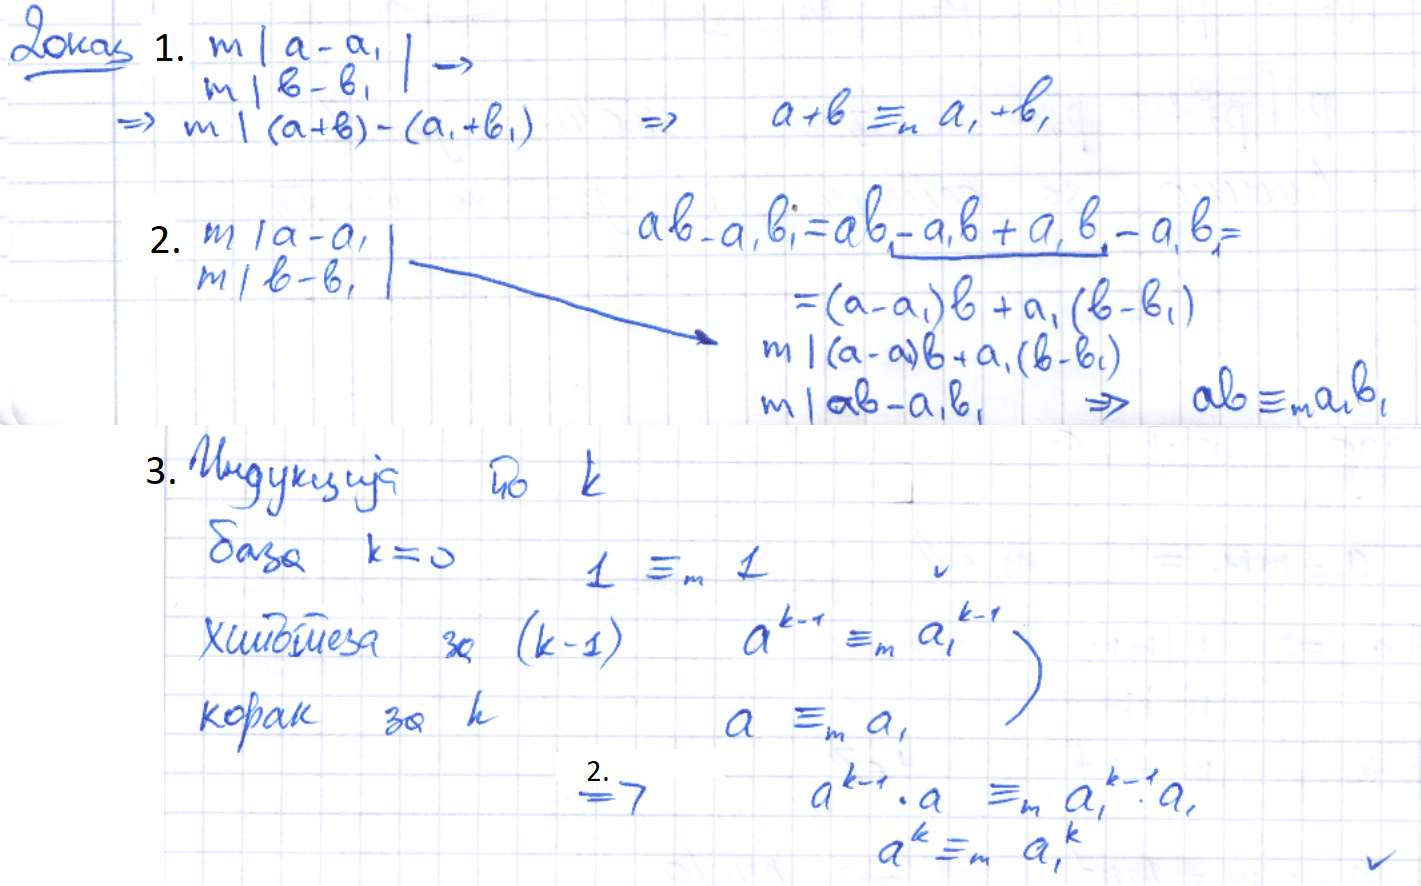 Доказ 1. m | a - a₁ | →
m | b - b₁
⇒ m | (a+b) - (a₁+b₁) ⇒ a+b ≡ₙ a₁+b₁
2. m | a - a₁ | ab - a₁b₁ = ab - a₁b + a₁b - a₁b₁ =
m | b - b₁
= (a-a₁)b + a₁(b-b₁)
m | (a-a₁)b + a₁(b-b₁)
m | ab - a₁b₁ ⇒ ab ≡ₘ a₁b₁
3. Индукција по k
база k=0 1 ≡ₘ 1 ✓
хипотеза за (k-1) aᵏ⁻¹ ≡ₘ a₁ᵏ⁻¹
корак за k a ≡ₘ a₁
2.
⇒ aᵏ⁻¹ · a ≡ₘ a₁ᵏ⁻¹ · a₁
aᵏ ≡ₘ a₁ᵏ ✓